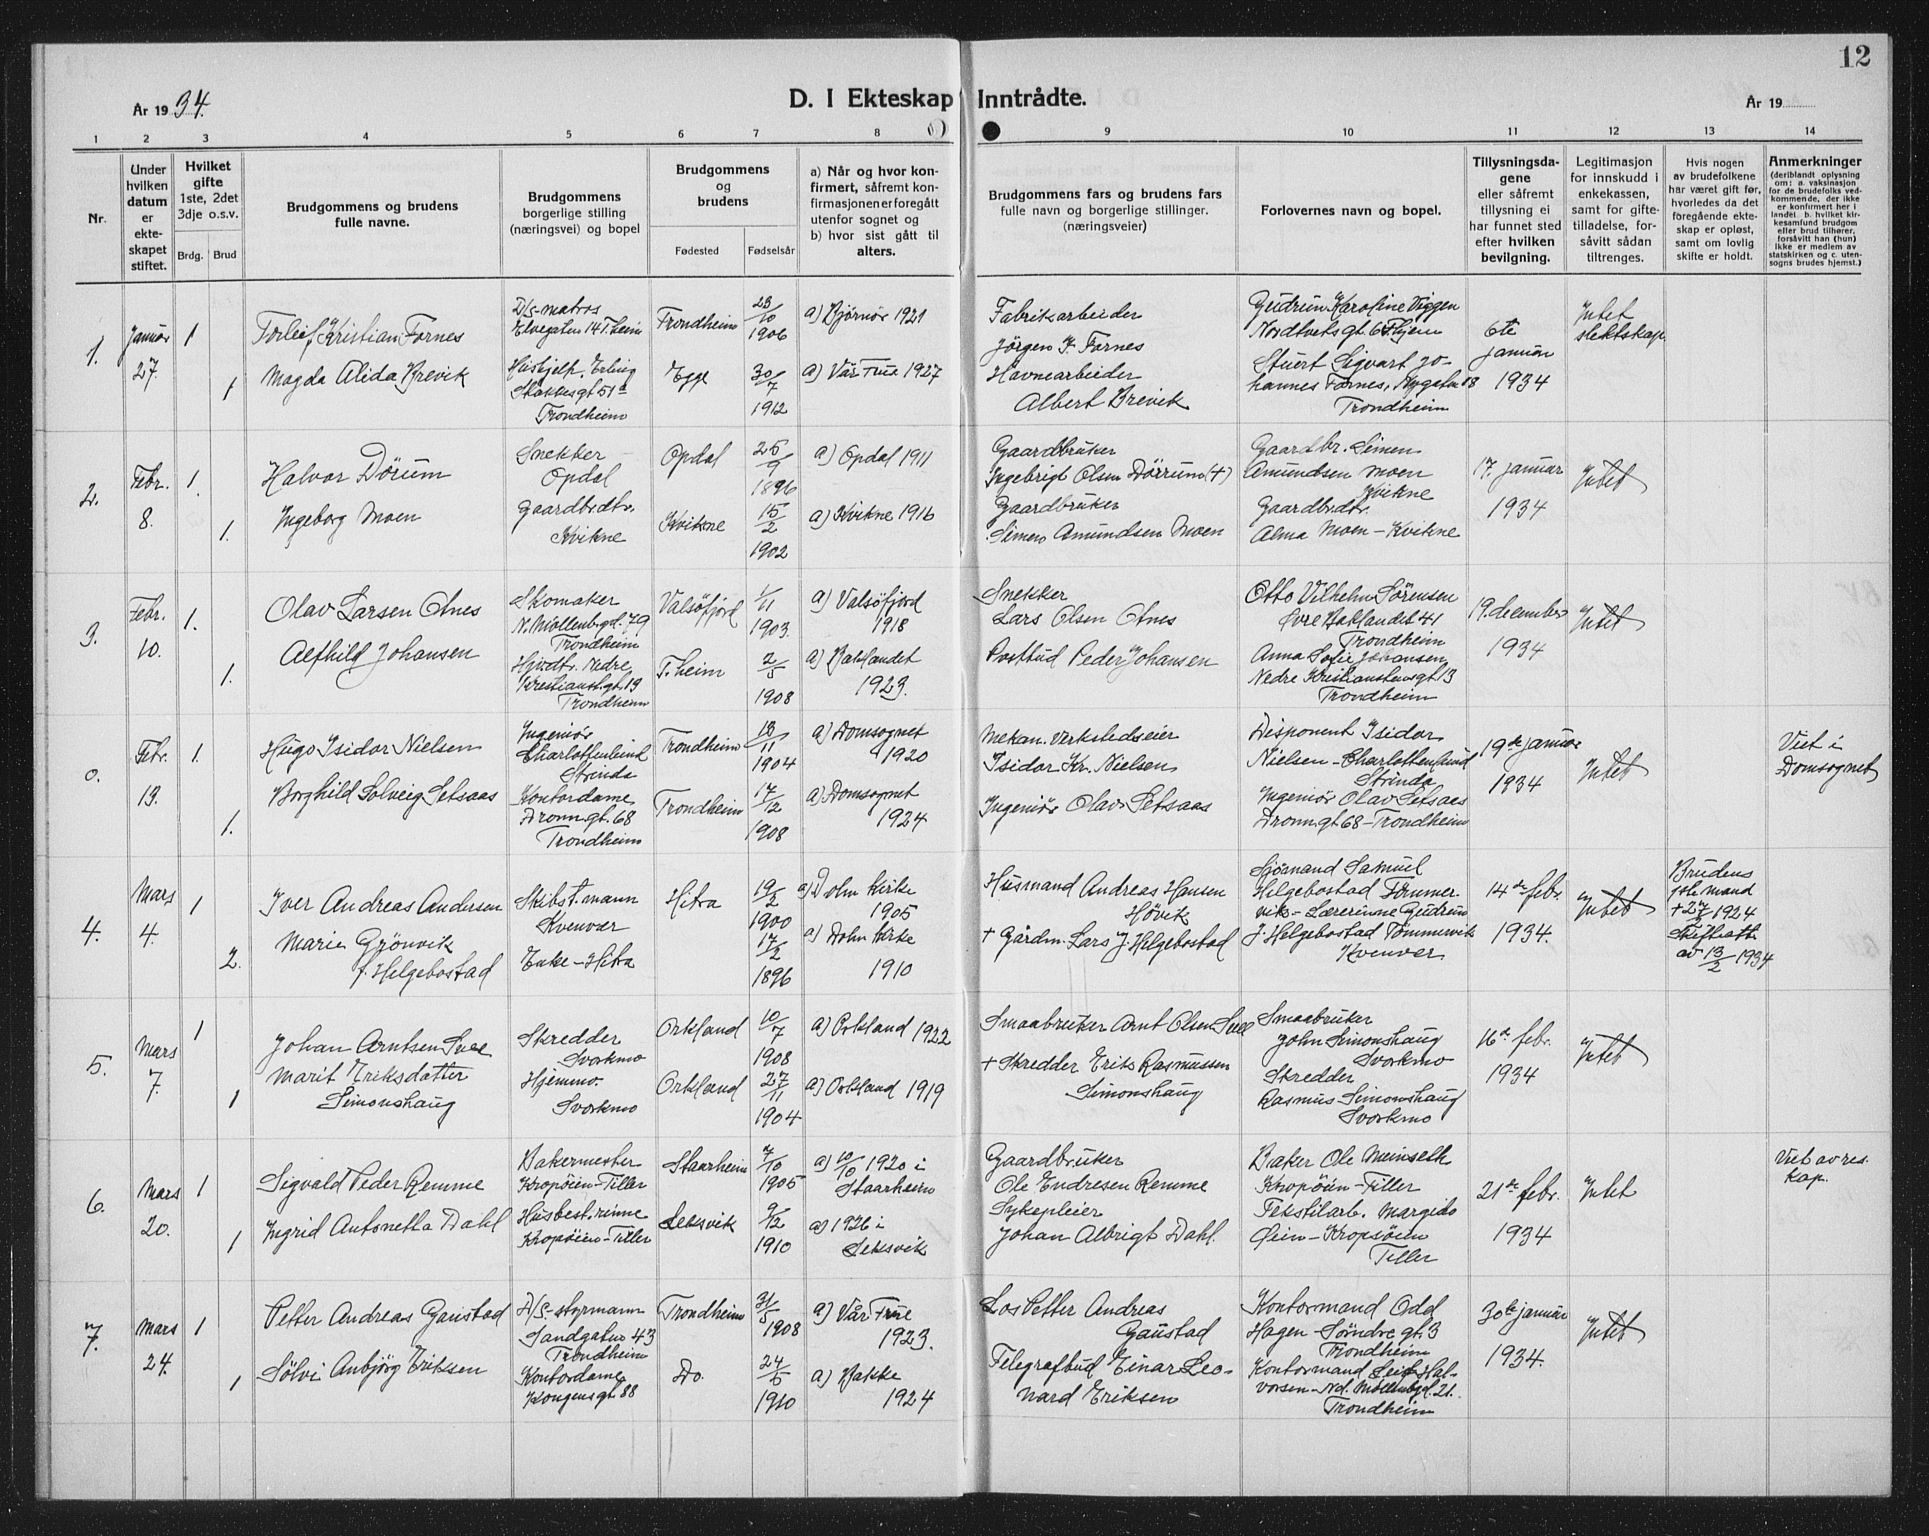 12
D. I Ekteskap Inntrådte.
År 1934.
År 19
1 2 3 4 5 6 7 8 9 10 11 12 13 14
Nr.
Under hvilken datum er ekteskapet stiftet.
Hvilket gifte 1ste, 2det 3dje o.s.v.
Brdg. Brud
Brudgommens og brudens fulle navne.
Brudgommens borgerlige stilling (næringsvei) og bopel
Brudgommens og brudens
Fødested Fødselsår
a) Når og hvor konfirmert, såfremt konfirmasjonen er foregått utenfor sognet og b) hvor sist gått til alters.
Brudgommens fars og brudens fars fulle navn og borgerlige stillinger. (næringsveier)
Forlovernes navn og bopel.
Tillysningsdagene eller såfremt tillysning ei har funnet sted efter hvilken bevilgning.
Legitimasjon for innskudd i enkekassen, samt for giftetilladelse, forsåvitt sådan tiltrenges.
Hvis nogen av brudefolkene har været gift før, hvorledes da det foregående ekteskap er opløst, samt om lovlig skifte er holdt.
Anmerkninger (deriblandt oplysning om: a. vaksinasjon for de brudefolks vedkommende, der ikke er konfirmert her i landet. b. hvilket kirkesamfund brudgom eller brud tilhører, forsåvitt han (hun) ikke er medlem av statskirken og c. utensogns brudes hjemst.)
1.
Januar
27.
1
1
Torleif Kristian Fornes
Magda Alida Brevik
D/S-matros
Elvegaten 14 T.heim
Hushjelp. Erling
Skakkesgt 51a
Trondheim
Trondheim
23/10
1906
Egge
30/7
1912
a) Bjørnør 1921
a) Vår Frue 1927
Fabrikarbeider
Jörgen K. Fornes
Havnearbeider
Albert Brevik
Gudrun Karoline Viggen
Stuert Sigvart Jo-
hannes Fornes, Nygaten 18
Trondheim
6te
januar
1934
Intet
slektskap
2.
Febr.
8.
1.
1.
Halvor Dörum
Ingeborg Moen
Snekker
Opdal
Gaardbrdtr.
Kvikne
Opdal
25/9
1896
Kvikne
15/2
1902
a) Opdal 1911
a) Kvikne 1916
Gaardbruker
Ingebrigt Olsen Dörrum (+)
Gaardbruker
Simen Amundsen Moen
Gaardbr. Simen
Amundsen Moen
Kvikne
Gaardbrdtr.
Alma Moen - Kvikne
17. januar
1934
Intet
3.
Febr.
10.
1.
1.
Olav Larsen Otnes
Alfhild Johansen
Skomaker
N. Möllenbgd. 79
Trondheim
Hjvdtr. Nedre
Kristianst.gt. 19
Trondheim
Valsöfjord
1/11
1903.
T.heim
2/5
1908
a) Valsöfjord
1918
a) Baklandet
1923.
Snekker
Lars Olsen Otnes
Postbud Peder Johansen
Otto Vilhelm Sörensen
Övre Baklandet 41
Trondheim
Anna Sofie Johansen
Nedre Kristianstensgt. 13
Trondheim
19. december
1934
Intet
0.
Febr.
13.
1.
1.
Hugo Isidor Nielsen
Borghild Solveig Setsaas
Ingeniör
Charlottenlund
Strinda
Kontordame
Dronn.gt. 68
Trondheim
Trondheim
18/11
1904
Trondheim
17/12
1908
a) Domsognet
1920
a) Domsognet
1924
Mekan. Verkstedseier
Isidor Kr. Nielsen
Ingeniör Olav Setsaas
Disponent Isidor
Nielsen - Charlottenlund
Strinda
Ingeniör Olav Setsaas
Dronn.gt 68 - Trondheim
19de januar
1934
Intet
Viet i
Domsognet
4.
Mars
4.
1
2.
Iver Andreas Andersen
Marie Grönvik
f. Helgebostad
Skibst.mann
Kvenvær
Enke - Hitra
Hitra
19/2
1900
17/2
1896
a) Dolm kirke
1905
a) Dolm kirke
1910
Husmand Andreas Hansen
Høvik
+ Gårdm. Lars J. Helgebostad
Sjömand Samuel
Helgebostad Tömmer-
vik - Lærerinne Gudrun
J. Helgebostad Tömmervik
Kvenvær
14de febr.
1934.
Intet
Brudens
+ 27/2 1924
Skifteatt.
av 13/2 1934
5.
Mars
7.
1
1
Johan Arntsen Svee
Marit Eriksdatter
Simonshaug
Skredder
Svorkmo
Hjemmev.
Svorkmo
Orkland
10/7
1908
Orkland
27/11
1904
a) Orkland 1922
a) Orkland 1919
Smaabruker Arnt Olsen Svee
+ Skredder Erik Rasmussen
Simonshaug
Smaabruker
John Simonshaug
Svorkmo
Skredder
Rasmus Simonshaug
Svorkmo
16de febr.
1934
Intet
6.
Mars
20.
1
1
Sigvald Peder Remme
Ingrid Antonetta Dahl
Bakermester
Kropöien - Tiller
Husbest.rinne
Kropöien - Tiller
Staarheim
7/10
1905
Leksvik
9/12
1910
a) 10/10 1920 i
Staarheim
a) 1926 i
Leksvik
Gaardbruker
Ole Endresen Remme
Sykepleier
Johan Albrigt Dahl.
Baker Ole Meinseth
Kropöien - Tiller
Tekstilarb. Margido
Öien - Kropöien
Tiller
21de febr.
1934
Intet
Viet av res.
kap.
7.
Mars
24.
1
1
Petter Andreas Gaustad
Sölvi Anbjörg Eriksen
D/S-styrmann
Sandgaten 43
Trondheim
Kontordame
Kongensgt. 88
Trondheim
31/5
1908
Do.
24/5
1910
a) Vår Frue
1923.
a) Bakke
1924
Los Petter Andreas
Gaustad
Telegrafbud Einar Leo-
nard Eriksen
Kontormand Odd
Hagen - Söndre gt. 3
Trondheim
Kontormand Leif Hal-
vorsen - Nd. Möllenbgd. 21.
Trondheim
30te januar
1934.
Intet